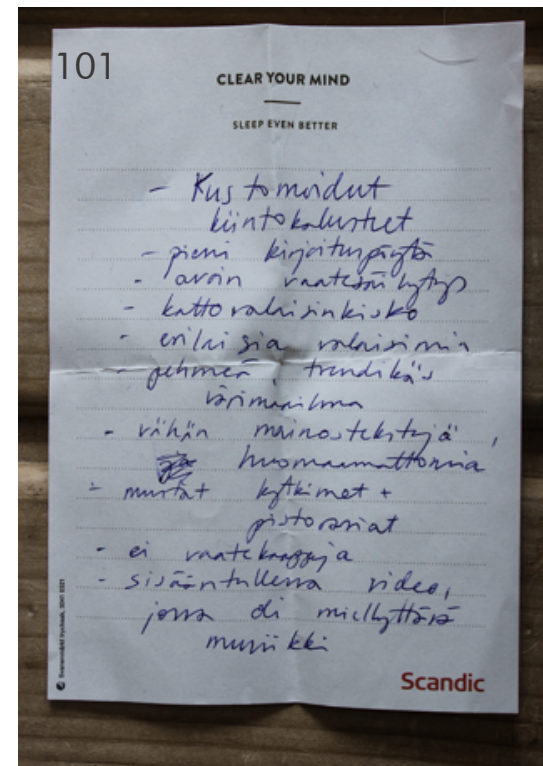 101
CLEAR YOUR MIND
SLEEP EVEN BETTER
- Kustomoidut
kiintokalusteet
- pieni kirjoituspöytä
- avoin vaatesäilytys
- kattovalaisinkisko
- erilaisia valaisimia
- pehmeä, trendikäs
värimaailma
- vähän mainostekstejä,
huomaamattomia
- mustat kytkimet +
pistorasiat
- ei vaatekaappeja
- sisääntullessa video,
jossa oli miellyttävä
musiikki
Scandic